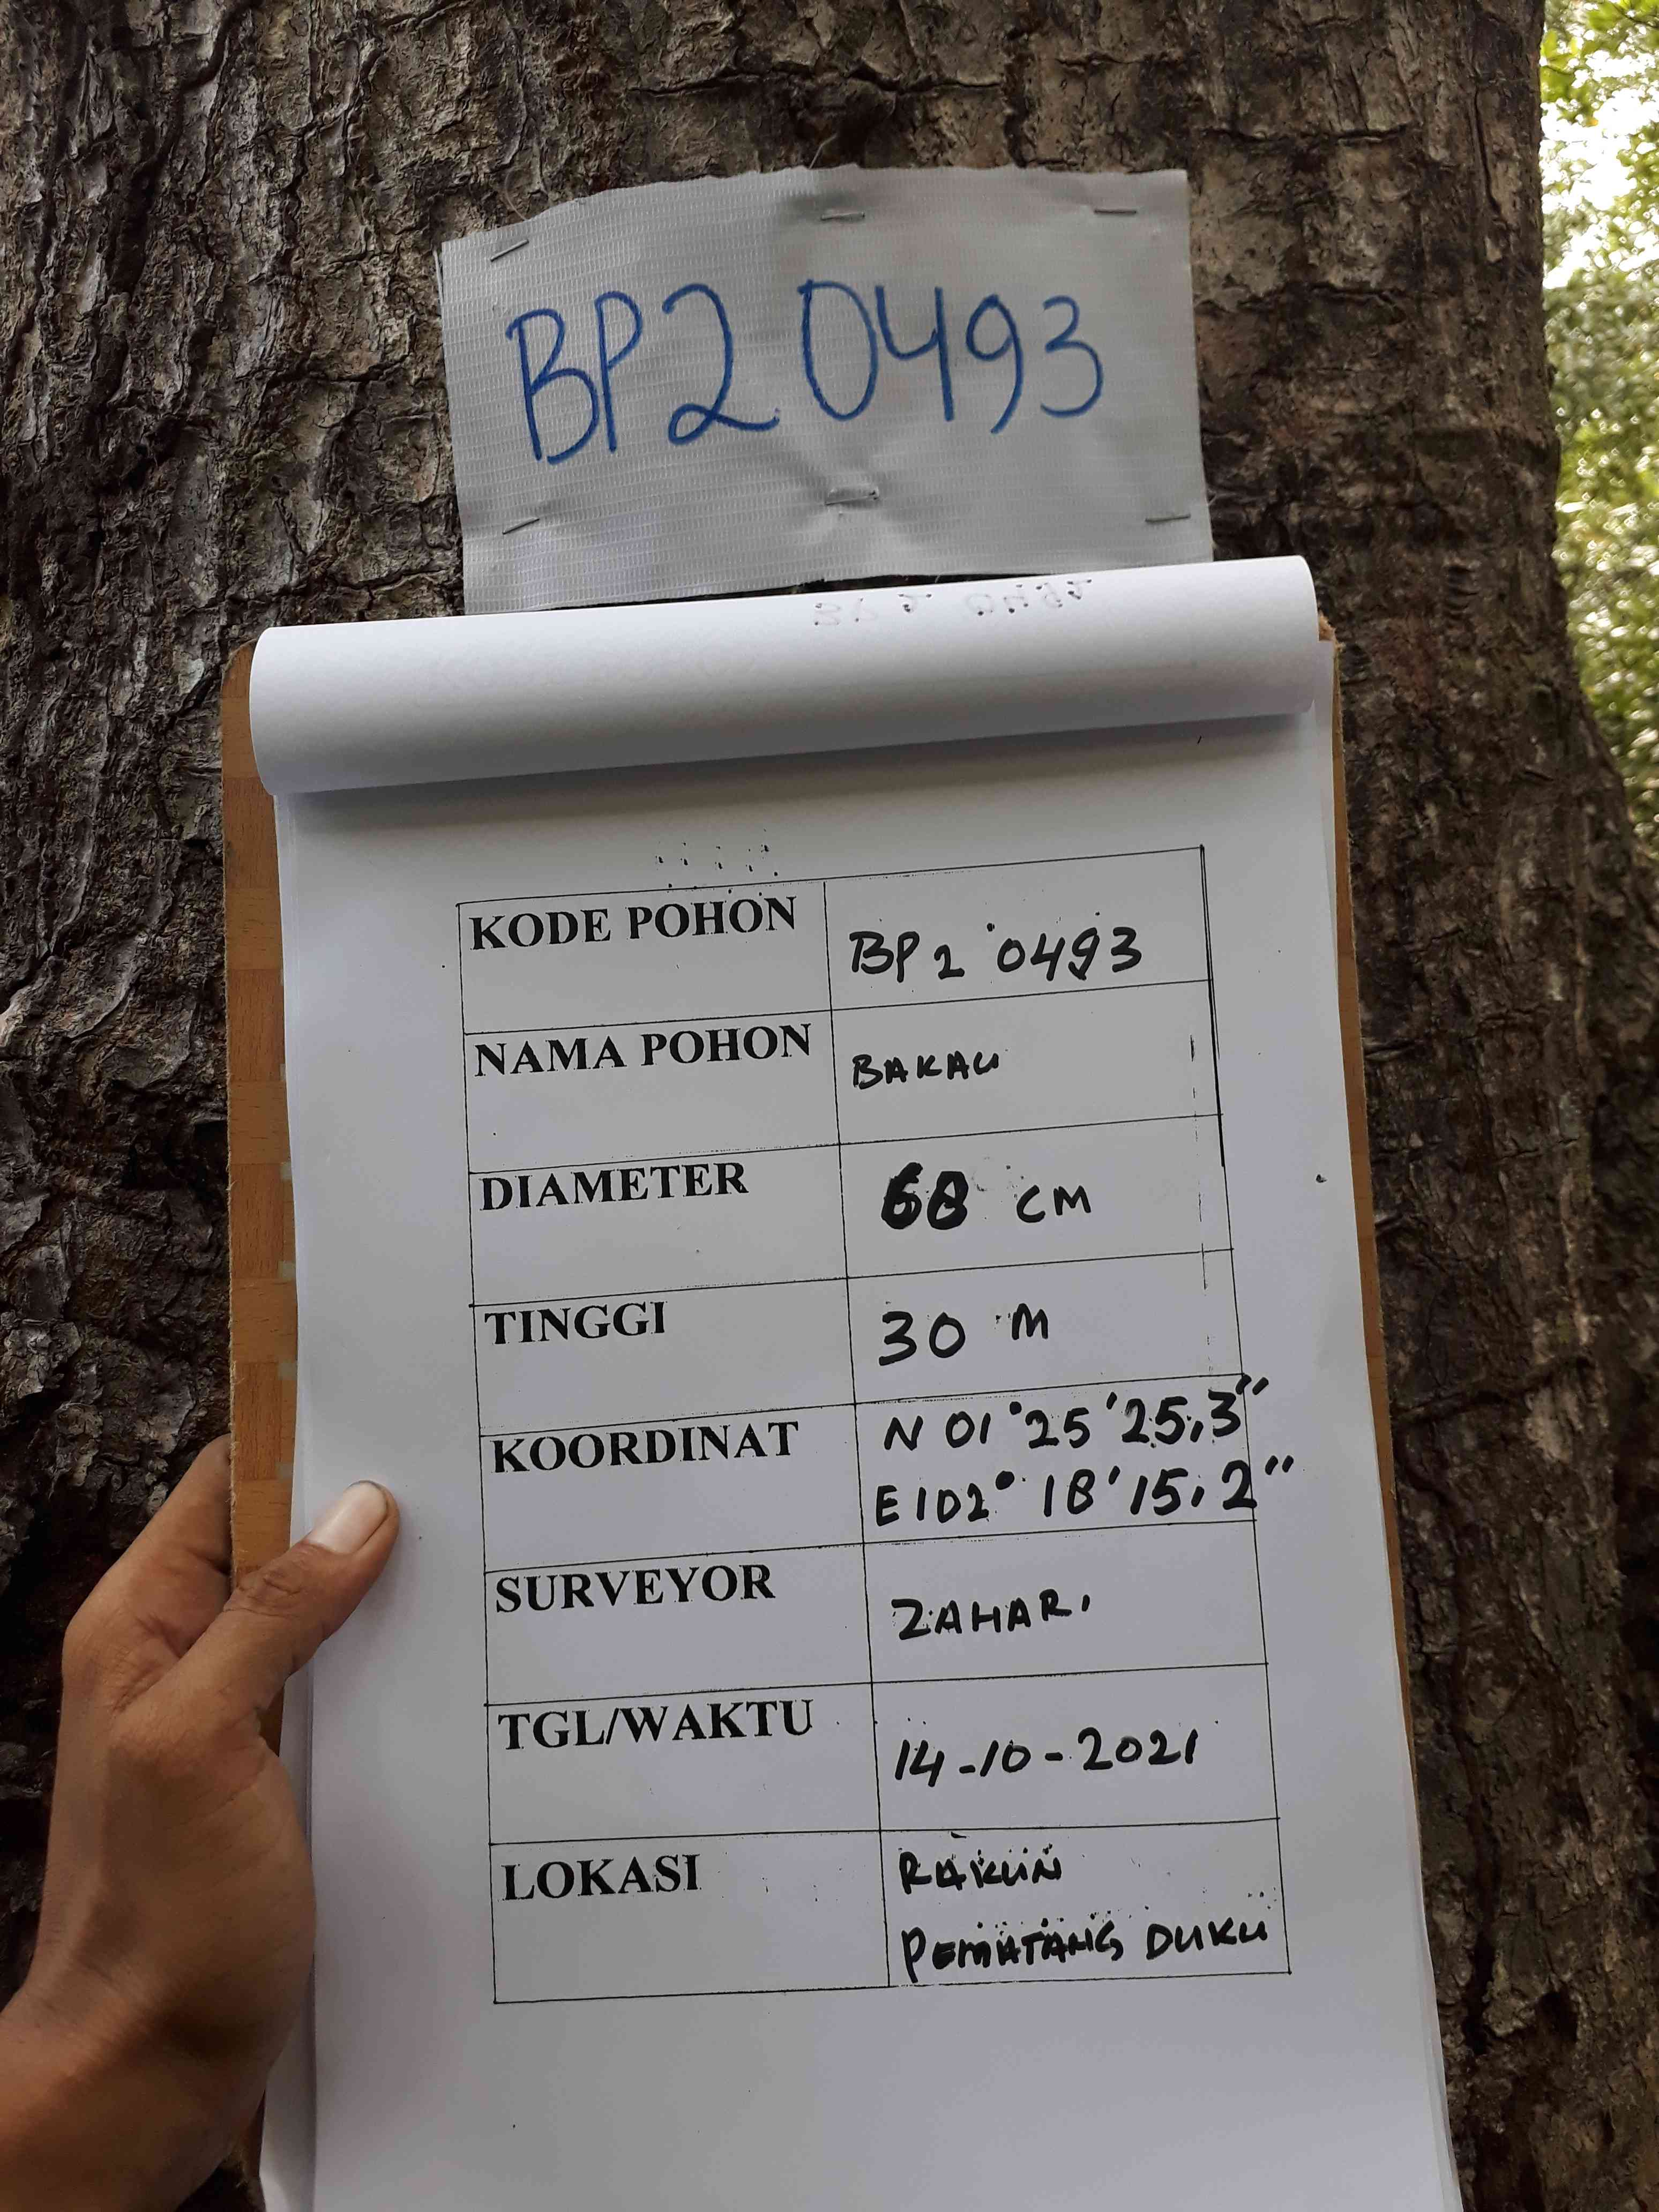 BP2 0493
KODE POHON BP2 0493
NAMA POHON BAKAU
DIAMETER 68 CM
TINGGI 30 M
KOORDINAT N 01°25'25,3"
E 102° 18'15,2"
SURVEYOR ZAHARI
TGL/WAKTU 14-10-2021
LOKASI RAKUN
PEMATANG DUKU